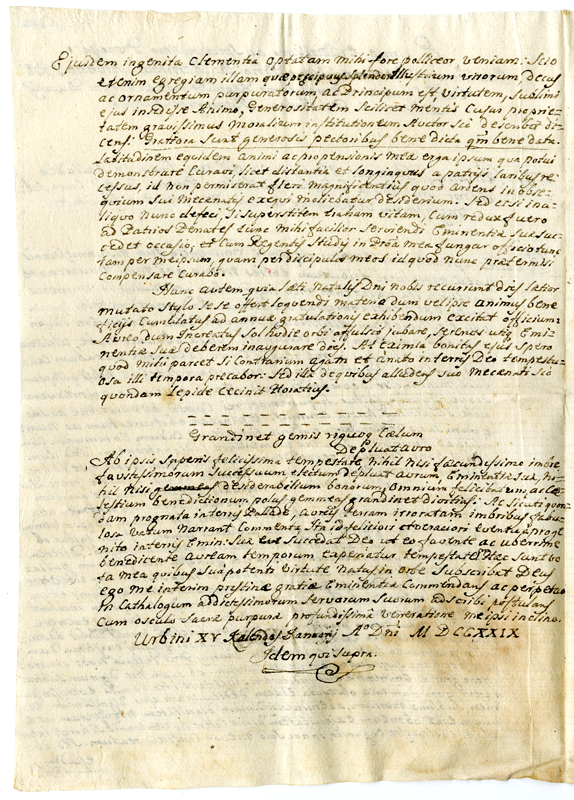 Ejusdem ingenita Clementia optatam mihi fore polliceor veniam: Scio
etenim egregiam illam quæ præcipuus splendor Illustrium virorum, decus
ac ornamentum purpuratorum ac Principum est virtutem, sublimi
ejus insedisse Animo, Generositatem scilicet mentis Cujus proprie-
tatem gravissimus moralium institutionum Auctor sic describit di-
cens: Gratiora sunt generosis pectoribus bene dicta qm bene data.
satitudinem equidem animi ac propensionis meæ erga ipsum qua potui
demonstrare Curavi, licet distantia et longinquus a patrijs laribus re-
cessus, id non permiserat fieri magnificentius quod ardens in obse-
quium sui Mecenatis exequi moliebatur desiderium. Sed etsi in a-
liquo Nunc defeci, Si superstitem traham vitam, Cum redux fuero
ad Patrios Penates tunc mihi facilior serviendi Eminentiæ suæ suc-
cedet occasio, et Cum Regentis Studij in Proa mea fungar officio tunc
tam per meipsum, quam per discipulos meos id quod nunc prætermisi
Compensare Curabo.
Nunc autem quia læti Natalis Dni nobis recurrunt dies lætior
mutato stylo sese offert loquendi materia dum velipse animus bene
ficijs Cumulatus ad annuæ gratulationis exhibendum excitat officium.
Aureo dum Increatus sol hodie orbi affulsit jubare, serenos utiq Emi-
nentiæ suæ deberem inaugurare dies. At eximia bonitas ejus spero
quod mihi parcet si Contrarium agam et Conato in terris Deo tempestu-
osa illi tempora precabor: sed illa de quibus alludens suo mecænati sic
quondam lepide cecinit Horatius.
Grandinet gemis riguoq Cælum
Depluat auro
Ab ipsis superis felicissima tempestate, nihil nisi fæcundissimo imbre
faustissimorum successuum electum depluat aurum, Eminentiæ suæ, ni-
hil nisi desiderabilium bonorum, omnium felicitatum, ac Cæ-
lestium benedictionum polus gemmeas grandinet divitias: Ac sicuti quon-
dam prognata in terris Pallade, aureis terram irroratam imbribus fabu-
losa vatum narrant Commenta Ita id felicius et veraciori eventu a proge-
nito in terris Emin. Suæ succedat Deo ut eo favente ac uberrime
benedicente auream temporum experiatur tempestate. Hæc sunt vo-
ta mea quibus sua potenti virtute natus in orbe subscribat Deus
ego me interim pristinæ gratiæ Eminentiæ Commendans ac perpetuo
in Cathalogum addictissimorum servorum suorum adscribi postulans
Cum osculo Sacræ purpuræ profundissima veneratione me ipsi inclino.
Urbini XV Kalendas Januarij Ao Dni MDCCXXIX
Idem qui supra.